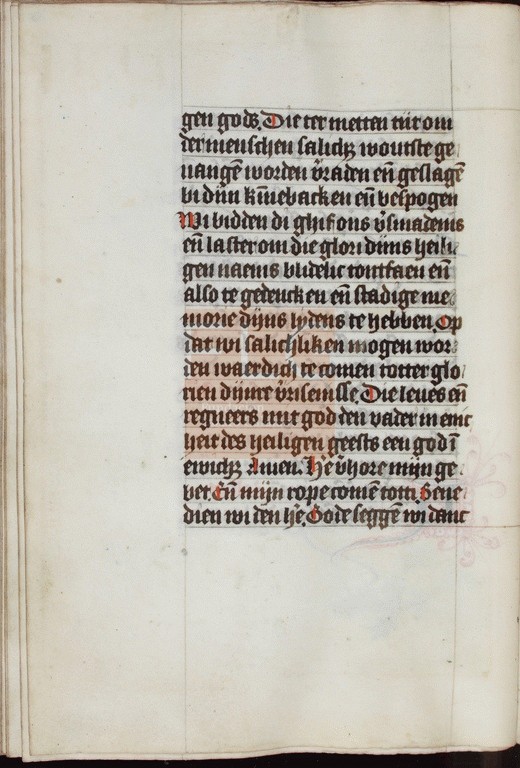 gen gods. Die ter metten tijt om
der menschen salich; woutste ge
uangē worden v̄raden eñ geslagē
bi dijn kinnebacken eñ bespogen
Wi bidden di ghif ons v̄smadenis
eñ laster om die glori dijns heili
gen naems blidelic tontfaen eñ
also te gedencken eñ stadige me
morie dijns lydens te hebben. Op
dat wi salichliken mogen wor
den waerdich te comen totter glo
rien dijnre v̄risenisse. Die leues eñ
regneers mit god den vader in enic
heit des heiligen geests een god ī
ewich; Amen. He v̄hore mijn ge
bet. Eñ mijn rope comē totti. Bene
dien wi den he. Gode seggē wi danc